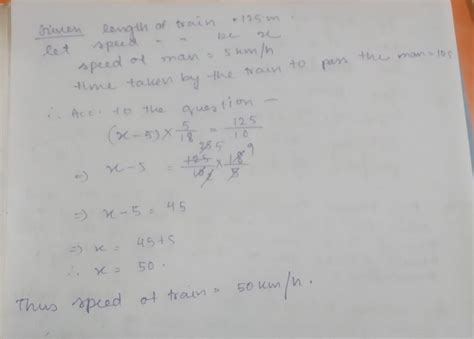 Given length of train = 125 m.
let speed " " be x
speed of man = 5 km/h
time taken by the train to pass the man = 10s
∴ Acc. to the question —
(x-5) × 5/18 = 125/10
=) x-5 = 125/10 × 18/5
=) x-5 = 45
=) x = 45+5
∴ x = 50.
Thus speed of train = 50 km/h.